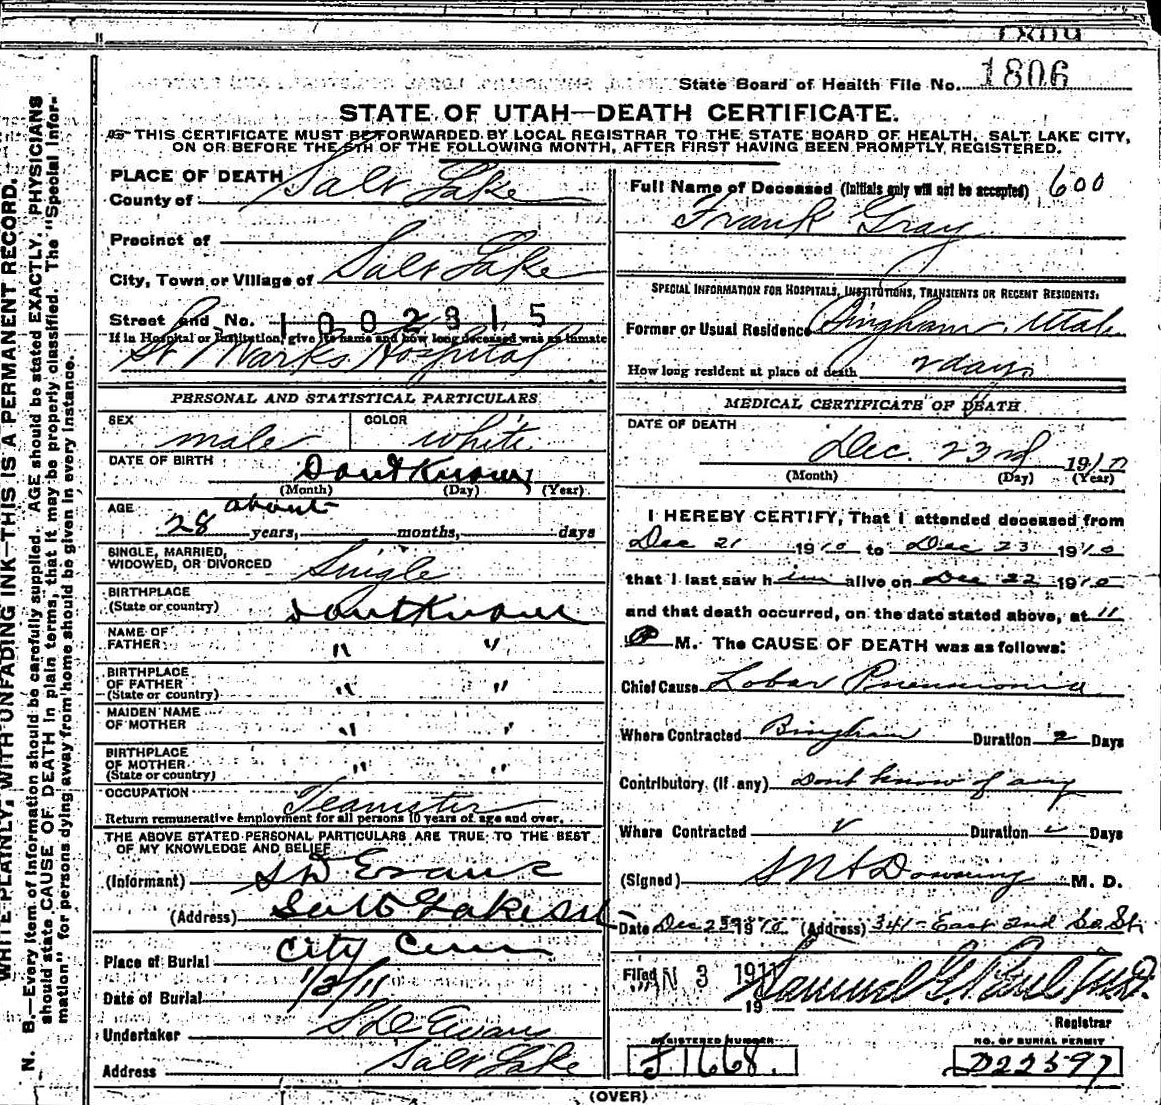 State Board of Health File No. 1806
STATE OF UTAH—DEATH CERTIFICATE.
THIS CERTIFICATE MUST BE FORWARDED BY LOCAL REGISTRAR TO THE STATE BOARD OF HEALTH, SALT LAKE CITY,
ON OR BEFORE THE 5TH OF THE FOLLOWING MONTH, AFTER FIRST HAVING BEEN PROMPTLY REGISTERED.
WRITE PLAINLY, WITH UNFADING INK—THIS IS A PERMANENT RECORD.
N. B.—Every item of Information should be carefully supplied. AGE should be stated EXACTLY. PHYSICIANS
should state CAUSE OF DEATH in plain terms, that it may be properly classified. The "Special Infor-
mation" for persons dying away from home should be given in every instance.
PLACE OF DEATH
County of Salt Lake
Precinct of
City, Town or Village of Salt Lake
Street and No. 1002815
If in Hospital or Institution, give its name and how long deceased was an inmate
St Marks Hospital
PERSONAL AND STATISTICAL PARTICULARS
SEX male COLOR white
DATE OF BIRTH Dont Know
(Month) (Day) (Year)
AGE about
28 years, months, days
SINGLE, MARRIED,
WIDOWED, OR DIVORCED Single
BIRTHPLACE
(State or country) Dont Know
NAME OF
FATHER " "
BIRTHPLACE
OF FATHER
(State or country) " "
MAIDEN NAME
OF MOTHER " "
BIRTHPLACE
OF MOTHER
(State or country) " "
OCCUPATION Teamster
Return remunerative employment for all persons 10 years of age and over.
THE ABOVE STATED PERSONAL PARTICULARS ARE TRUE TO THE BEST
OF MY KNOWLEDGE AND BELIEF
(Informant) S D Evans
(Address) Salt Lake
Place of Burial City Cem
Date of Burial 1/3/11
Undertaker S D Evans
Address Salt Lake
Full Name of Deceased (Initials only will not be accepted) 600
Frank Gray
SPECIAL INFORMATION FOR HOSPITALS, INSTITUTIONS, TRANSIENTS OR RECENT RESIDENTS:
Former or Usual Residence Bingham, Utah
How long resident at place of death 2 days
MEDICAL CERTIFICATE OF DEATH
DATE OF DEATH
Dec. 23rd 1910
(Month) (Day) (Year)
I HEREBY CERTIFY, That I attended deceased from
Dec 21 1910 to Dec 23 1910
that I last saw him alive on Dec 22 1910
and that death occurred, on the date stated above, at 11
P M. The CAUSE OF DEATH was as follows:
Chief Cause Lobar Pneumonia
Where Contracted Bingham Duration 2 Days
Contributory (if any) Dont know of any
Where Contracted Duration Days
(Signed) Downing M. D.
Date Dec 23 1910 (Address) 341 - East 2nd So. St.
Filed JAN 3 1911 Samuel G. Paul M.D.
19
Registrar
REGISTERED NUMBER
J1668.
NO. OF BURIAL PERMIT
D22597
(OVER)